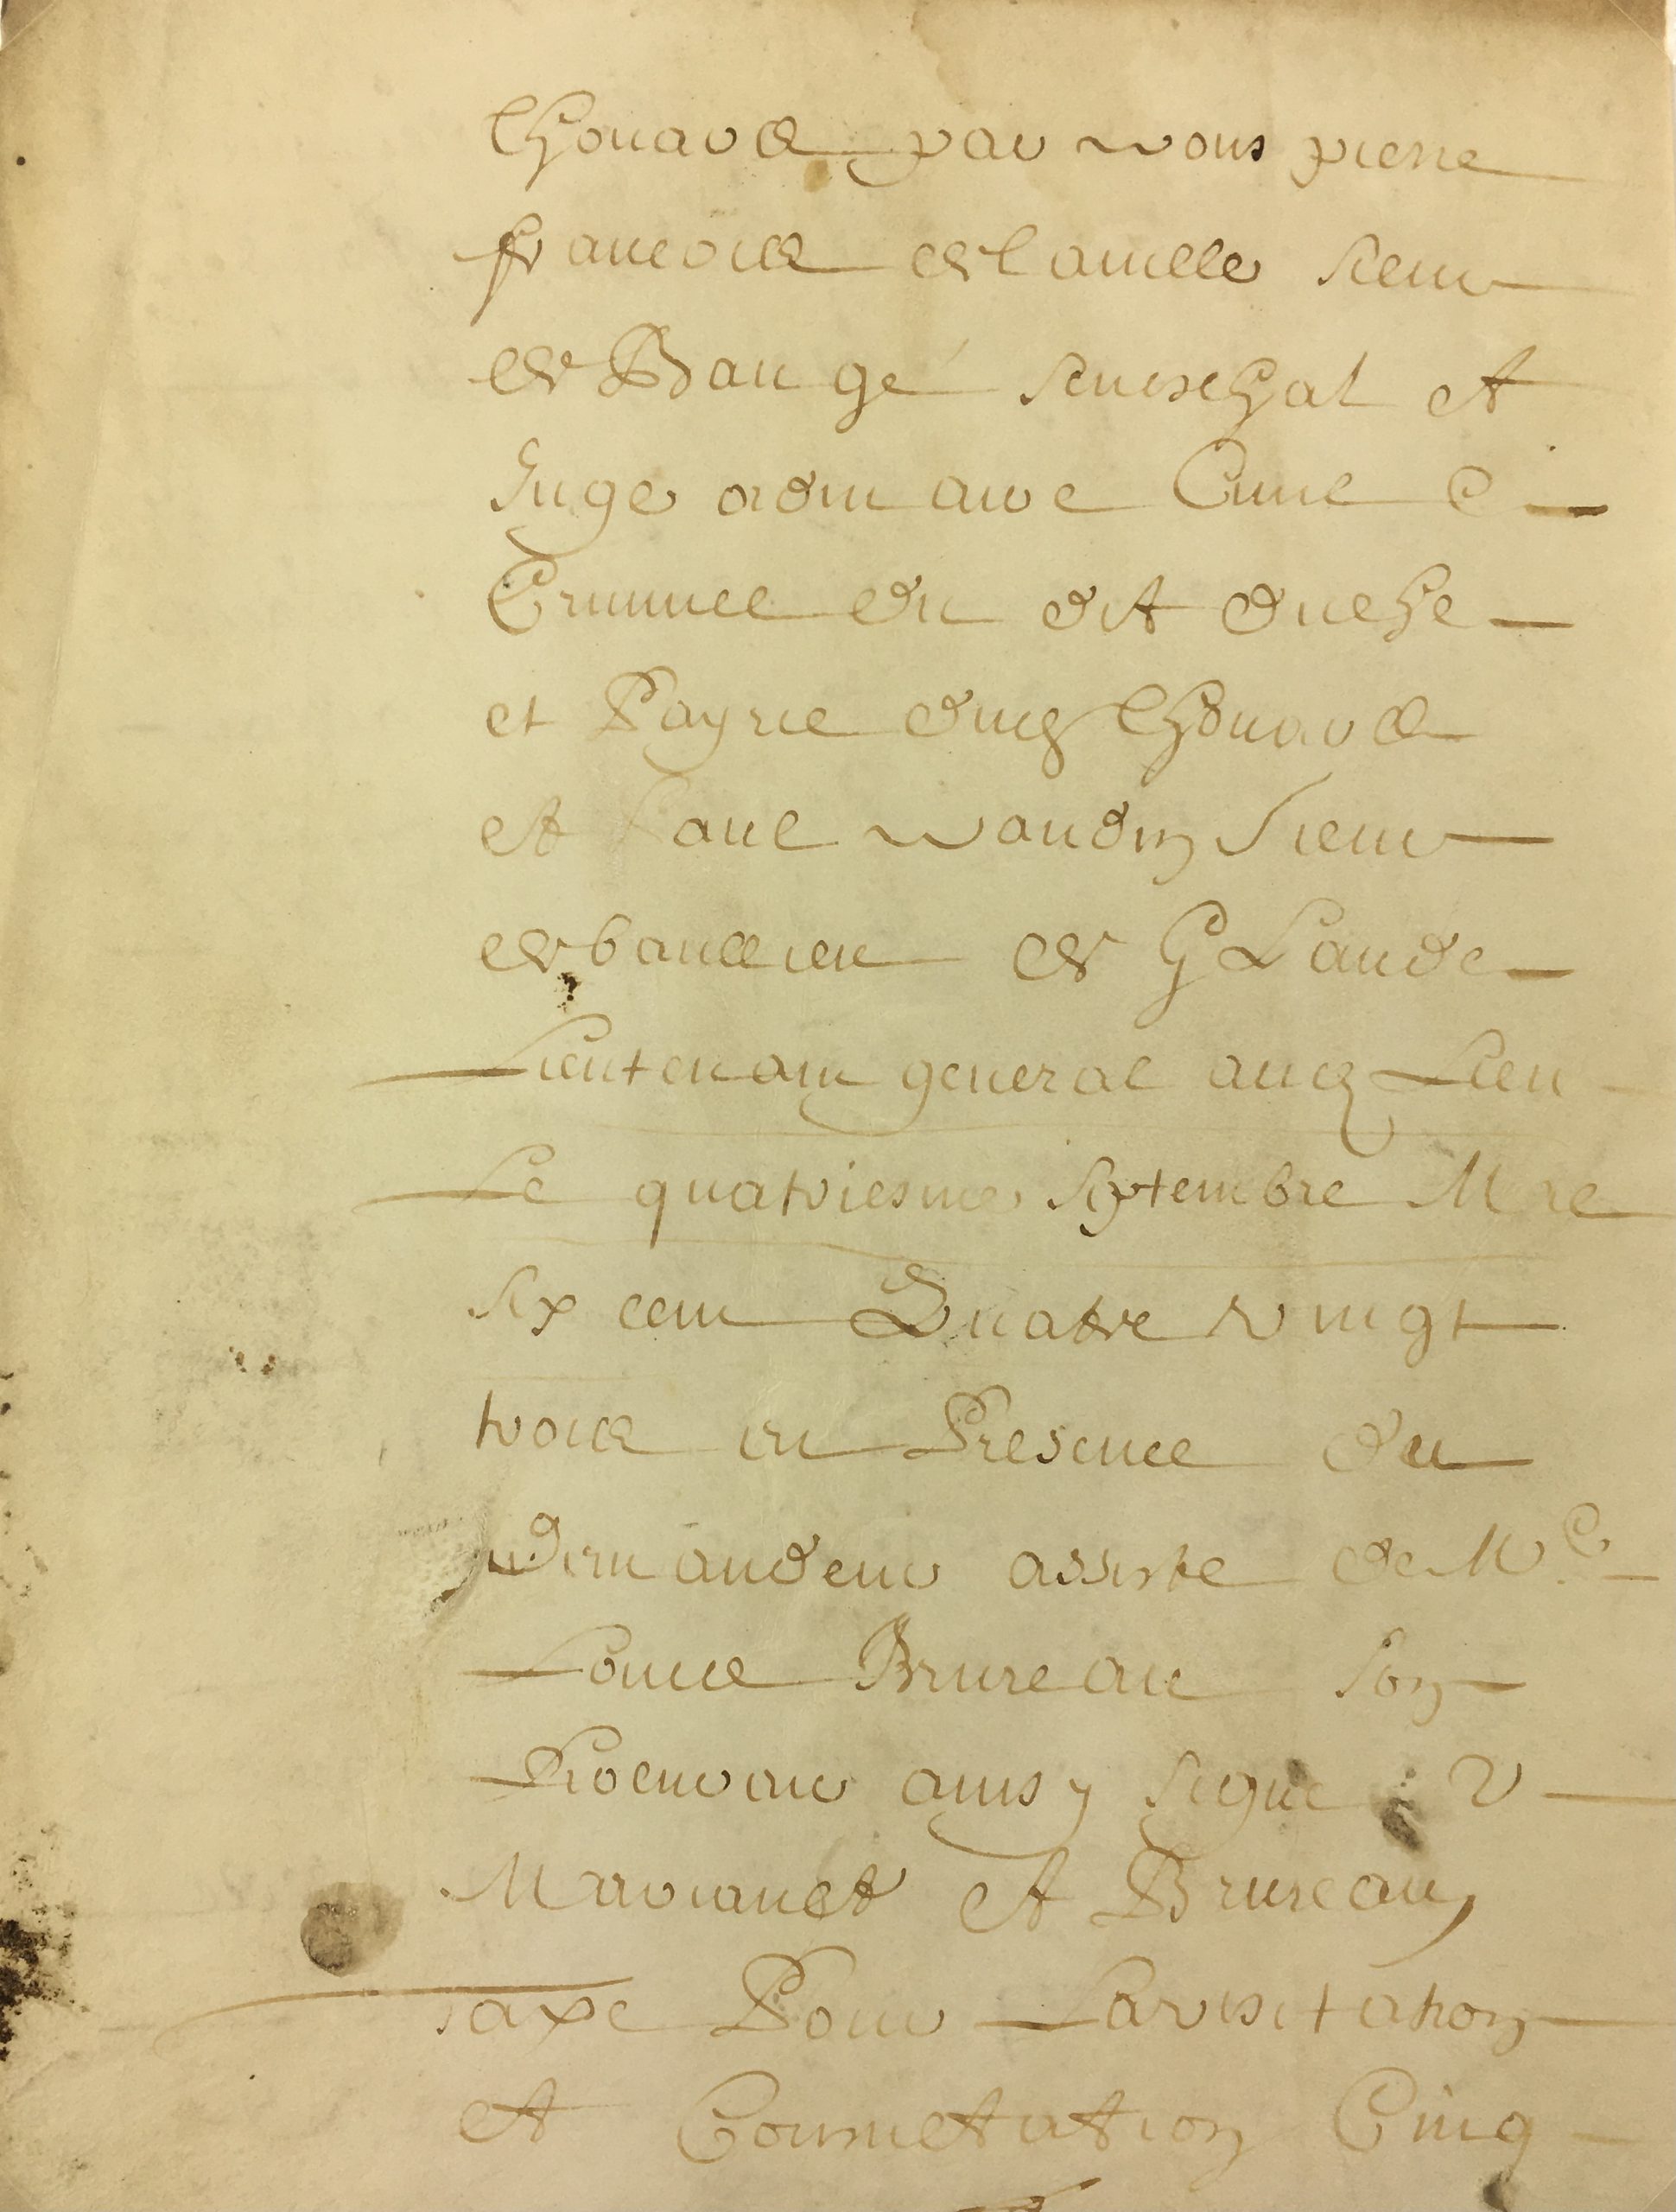 Thouars par nous pierre
francois delauille sieur
de Baugé seneschal et
Juge ordinaire Ciuil e
Criminel du dit duche
et Payrie dud Thouars
et Paul naudin sieur
de bauslieu de G Lande
Lieutenant general aud Lieu
Le quatriesme septembre Mil
six cent Quatre vingt
trois en Presence du
demandeur assiste de Me
Louis Brureau son
Procureur ainsy signe
et Brureau
taxe Pour La visitation
et Cing